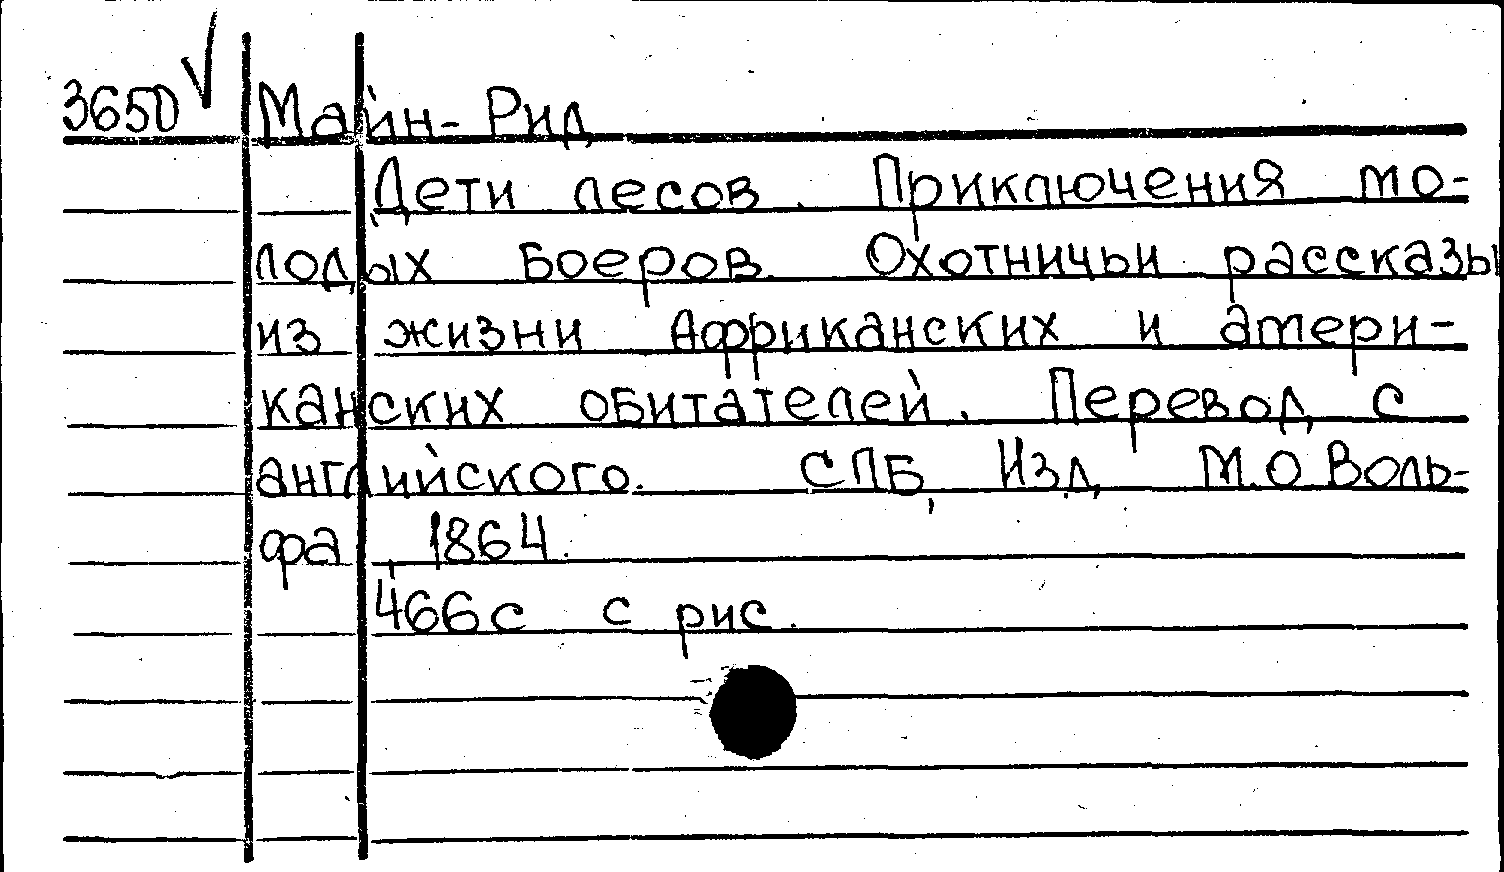 3650 Майн-Рид
Дети лесов. Приключения мо-
лодых боеров. Охотничьи рассказы
из жизни Африканских и амери-
канских обитателей. Перевод с
английского. СПБ, Изд. М.О Воль-
фа, 1864.
466с с рис.